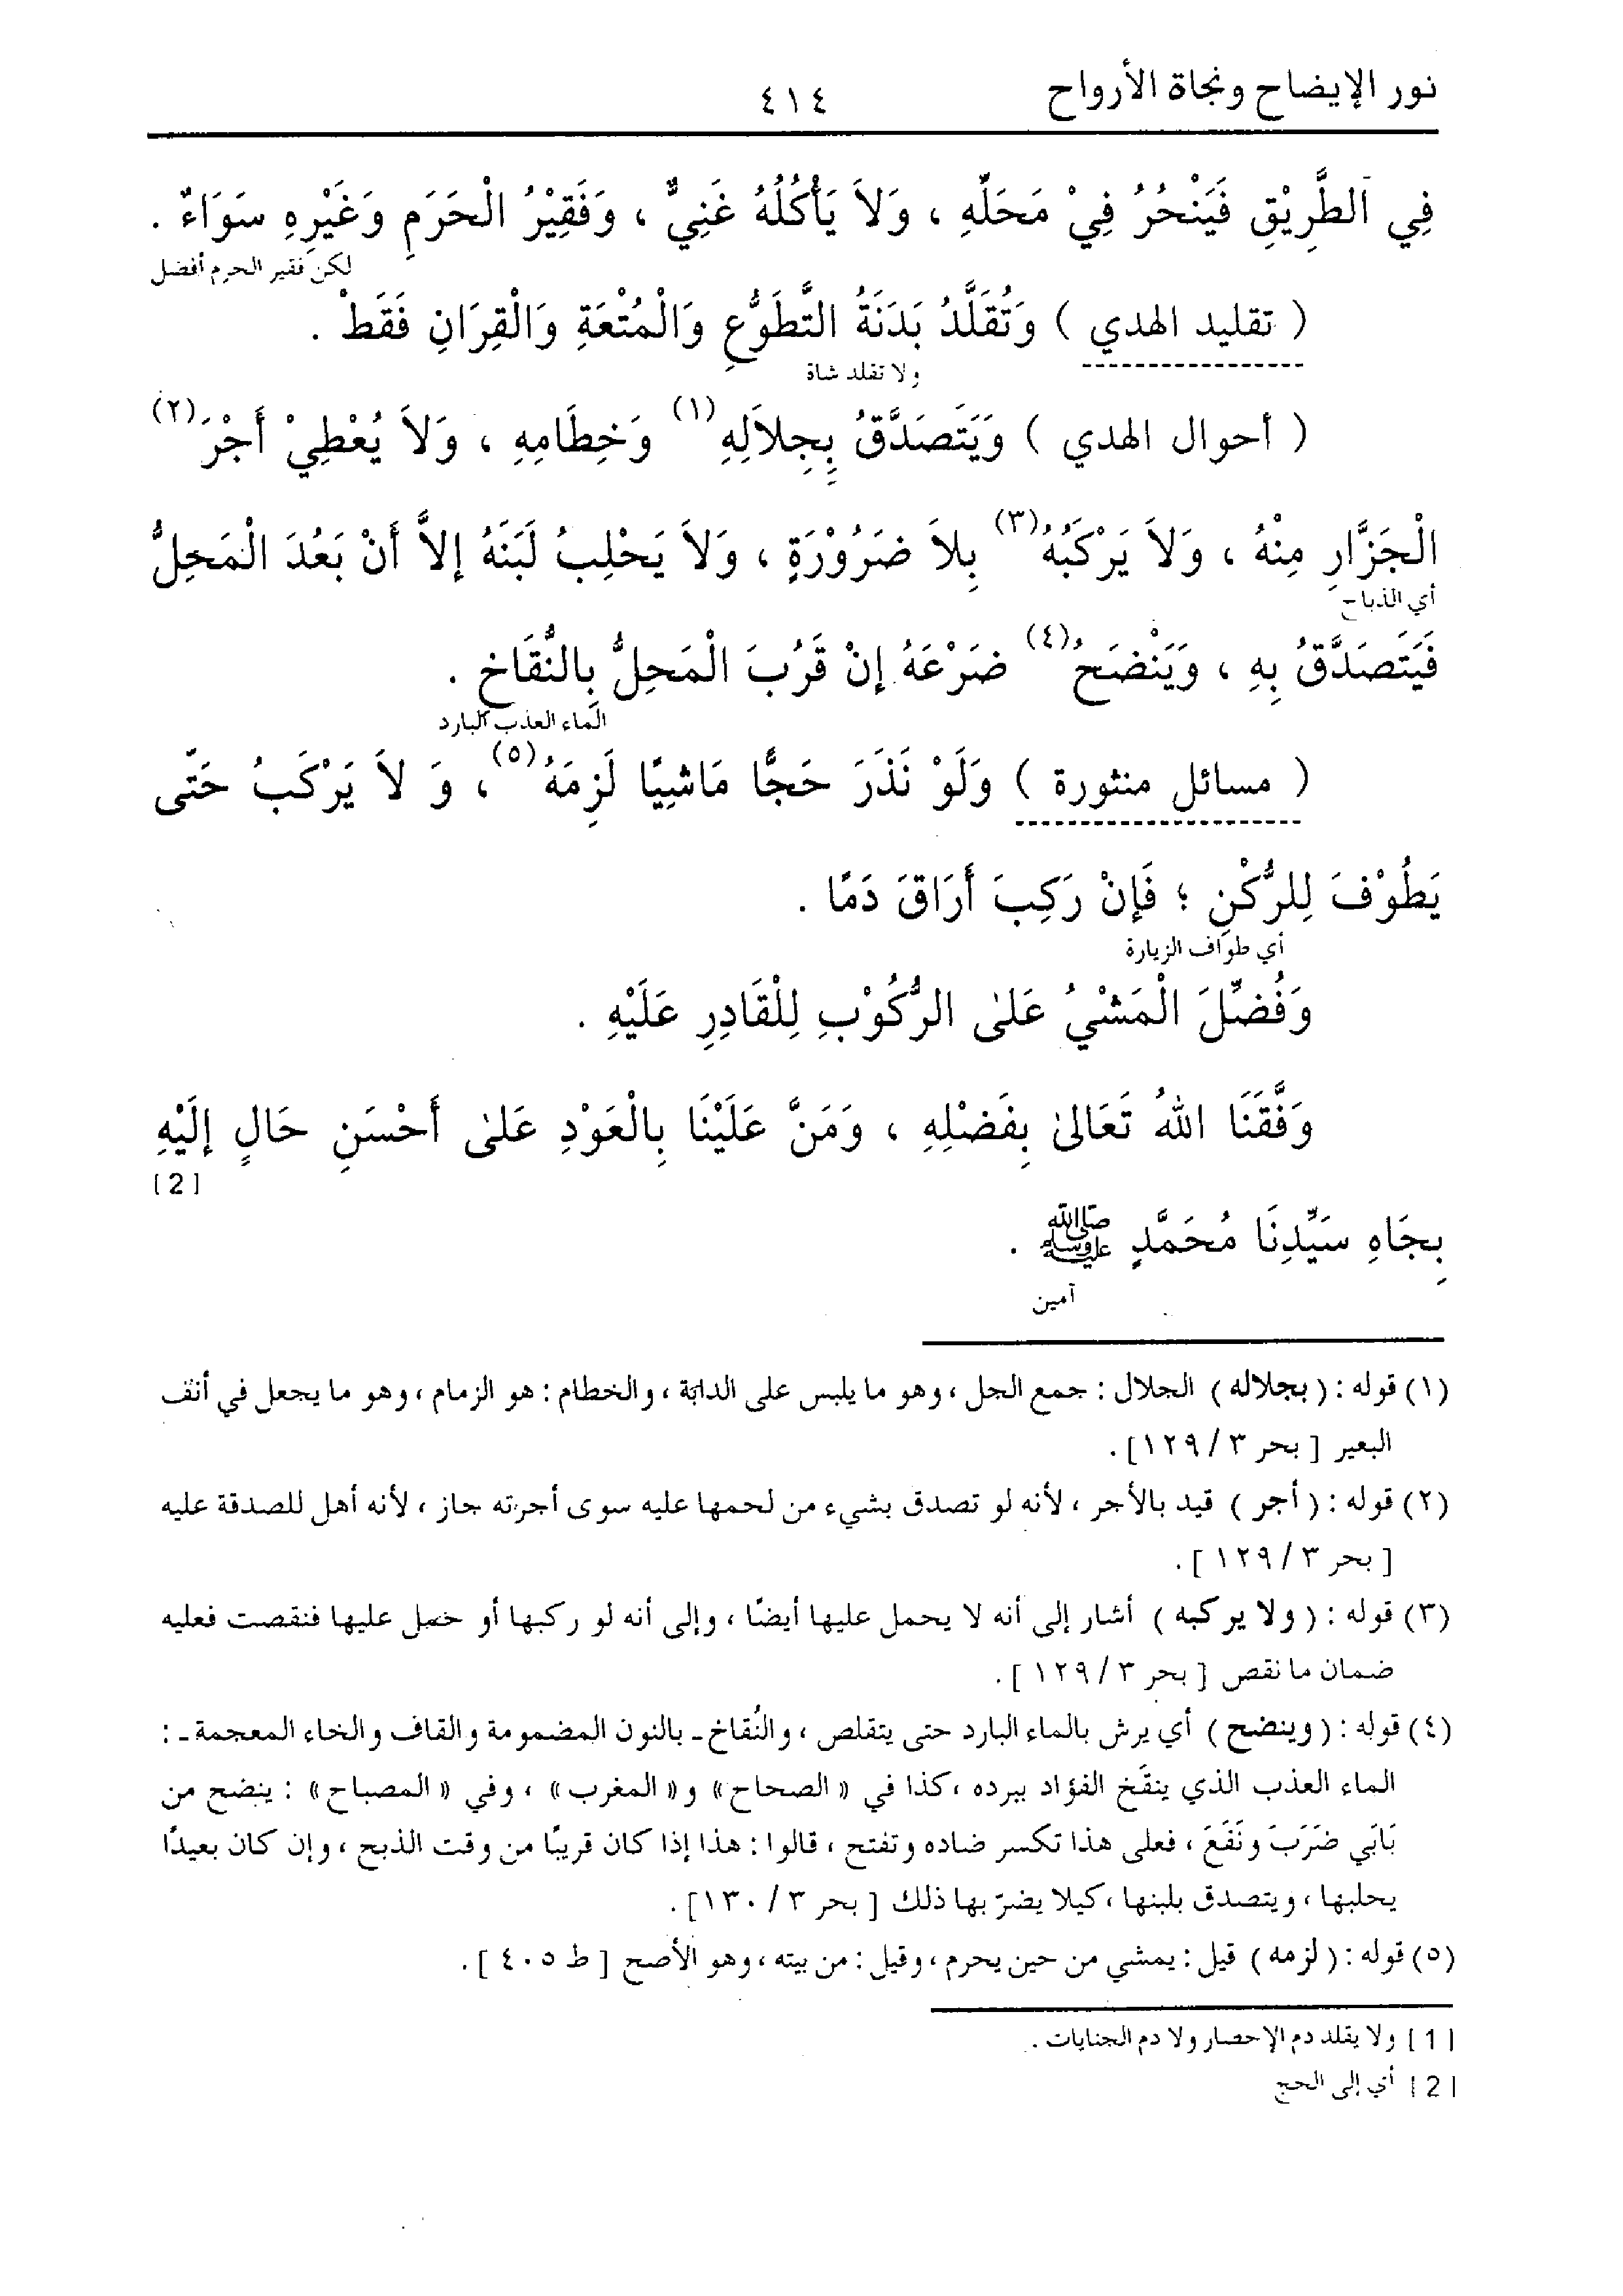 نور الإيضاح ونجاة الأرواح ٤١٤
فِي الطَّرِيْقِ فَيَنْحُرُ فِيْ مَحَلِّهِ ، وَلاَ يَأْكُلُهُ غَنِيٌّ ، وَفَقِيْرُ الْحَرَمِ وَغَيْرِهِ سَوَاءٌ .
لكن فقير الحرم أفضل
( تقليد الهدي ) وَتُقَلَّدُ بَدَنَةُ التَّطَوُّعِ وَالْمُتْعَةِ وَالْقِرَانِ فَقَطْ .
ولا تقلد شاة
( أحوال الهدي ) وَيَتَصَدَّقُ بِجِلاَلِهِ(١) وَخِطَامِهِ ، وَلاَ يُعْطِيْ أَجْرَ(٢)
الْجَزَّارِ مِنْهُ ، وَلاَ يَرْكَبُهُ(٣) بِلاَ ضَرُوْرَةٍ ، وَلاَ يَحْلِبُ لَبَنَهُ إلاَّ أَنْ بَعُدَ الْمَحِلُّ
أي الذباح
فَيَتَصَدَّقُ بِهِ ، وَيَنْضَحُ(٤) ضَرْعَهُ إنْ قَرُبَ الْمَحِلُّ بِالنُّقَاخِ .
الماء العذب البارد
( مسائل منثورة ) وَلَوْ نَذَرَ حَجًّا مَاشِيًا لَزِمَهُ(٥) ، وَ لاَ يَرْكَبُ حَتّى
يَطُوْفَ لِلرُّكْنِ ؛ فَإِنْ رَكِبَ أَرَاقَ دَمًا .
أي طواف الزيارة
وَفُضِّلَ الْمَشْيُ عَلىٰ الرُّكُوْبِ لِلْقَادِرِ عَلَيْهِ .
وَفَّقَنَا اللهُ تَعَالىٰ بِفَضْلِهِ ، وَمَنَّ عَلَيْنَا بِالْعَوْدِ عَلىٰ أَحْسَنِ حَالٍ إلَيْهِ
[2]
بِجَاهِ سَيِّدِنَا مُحَمَّدٍ ﷺ .
آمين
(١) قوله : ( بجلاله ) الجلال : جمع الجل ، وهو ما يلبس على الدابة ، والخطام : هو الزمام ، وهو ما يجعل في أنف
البعير [ بحر ٣ / ١٢٩] .
(٢) قوله : ( أجر ) قيد بالأجر ، لأنه لو تصدق بشيء من لحمها عليه سوى أجرته جاز ، لأنه أهل للصدقة عليه
[ بحر ٣ / ١٢٩ ] .
(٣) قوله : ( ولا يركبه ) أشار إلى أنه لا يحمل عليها أيضًا ، وإلى أنه لو ركبها أو حمل عليها فنقصت فعليه
ضمان ما نقص [ بحر ٣ / ١٢٩ ] .
(٤) قوله : ( وينضح ) أي يرش بالماء البارد حتى يتقلص ، والنُقاخ ـ بالنون المضمومة والقاف والخاء المعجمة ـ :
الماء العذب الذي ينقَخ الفؤاد ببرده ، كذا في « الصحاح » و« المغرب » ، وفي « المصباح » : ينضح من
بَابَي ضَرَبَ ونَفَعَ ، فعلى هذا تكسر ضاده وتفتح ، قالوا : هذا إذا كان قريبًا من وقت الذبح ، وإن كان بعيدًا
يحلبها ، ويتصدق بلبنها ، كيلا يضرّ بها ذلك [ بحر ٣ / ١٣٠] .
(٥) قوله : ( لزمه ) قيل : يمشي من حين يحرم ، وقيل : من بيته ، وهو الأصح [ ط ٤٠٥ ] .
[1] ولا يقلد دم الإحصار ولا دم الجنايات .
[2] أي إلى الحج